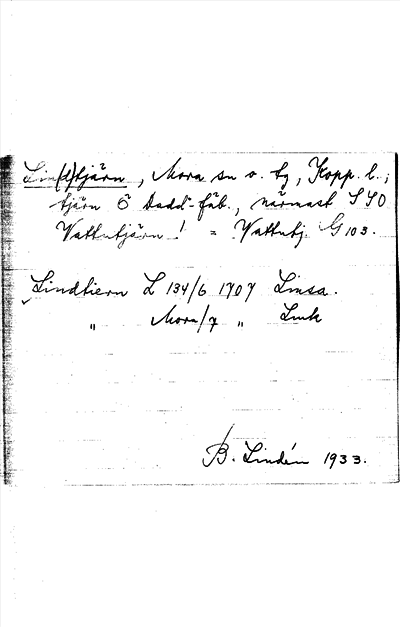 Lin(d)tjärn, Mora sn o. tg, Kopp. l.;
tjärn Ö Dadd-fäb., närmast SSO
Vattutjärn! = Vattutj. G 103.
Lindtiern L 134/6 1707 Linsa.
" Mora/7 " Lmk
B. Lindén 1933.